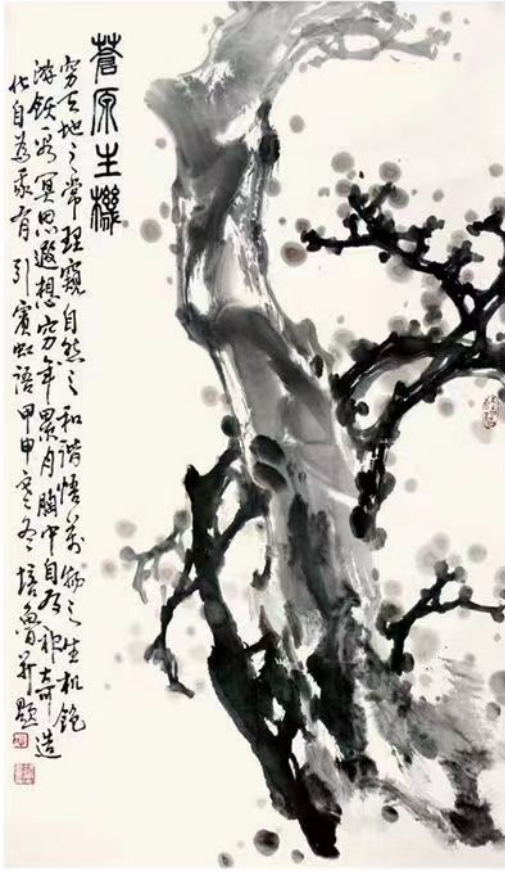 蒼原生機
穷天地之常理窺自然之和諧悟萬物之生机飽
游飫看冥思遐想穷年累月胸中自神奇造
化自為我有 引賓虹語 甲申寒冬 培魯并題